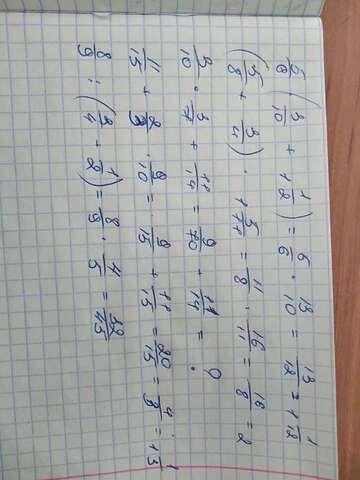 5/6 (3/10 + 1 1/2) = 5/6 · 13/10 = 13/12 = 1 1/12
(5/8 + 3/4) · 1 5/11 = 11/8 · 16/11 = 16/8 = 2
3/10 · 3/7 + 11/14 = 9/70 + 11/14 = ?
11/15 + 2/3 · 9/10 = 9/15 + 11/15 = 20/15 = 4/3 = 1 1/3
8/9 : (3/4 + 1/2) = 8/9 · 4/5 = 32/45